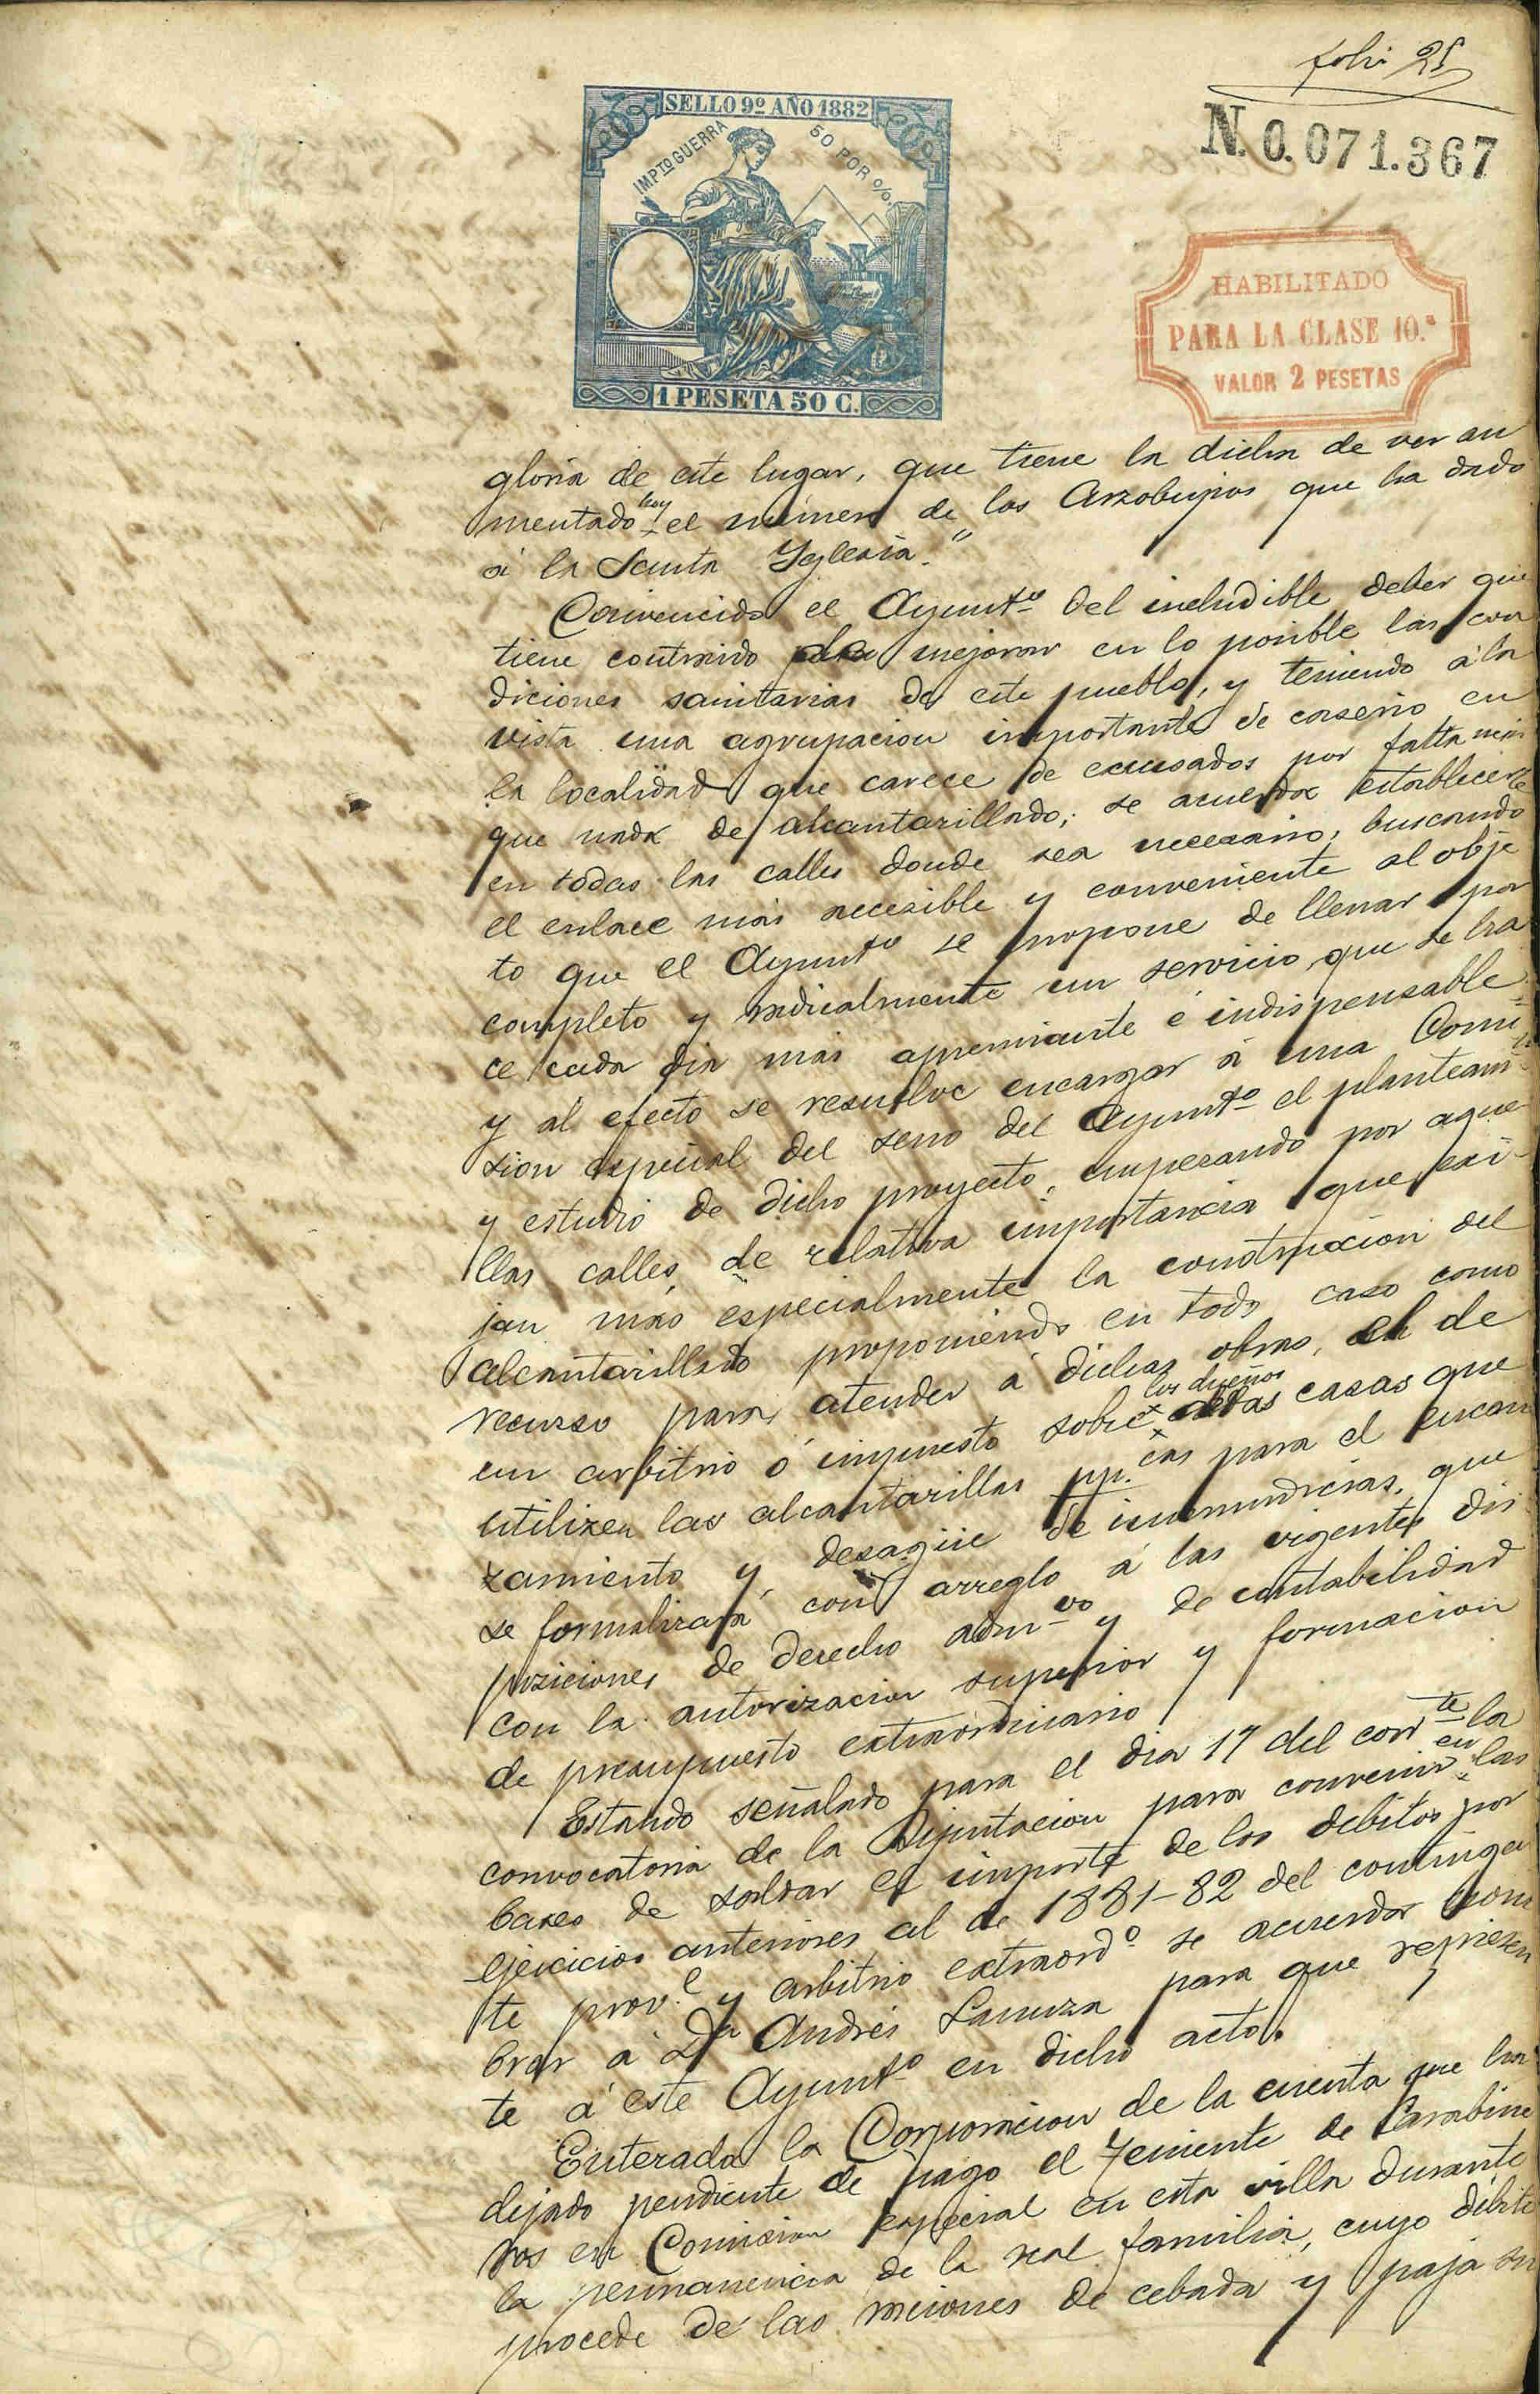 folio 25
N. 0.071.367
SELLO 9º AÑO 1882
IMPTO GUERRA 50 POR %.
1 PESETA 50 C.
HABILITADO
PARA LA CLASE 10.ª
VALOR 2 PESETAS
gloria de este lugar, que tiene la dicha de ver au
mentado hoy el número de los Arzobispos que ha dado
á la Santa Yglesia."
Convencido el Ayuntº del ineludible deber que
tiene contraido de mejorar en lo posible las con
diciones sanitarias de este pueblo, y teniendo á la
vista una agrupacion importante de caserio en
la localidad que carece de escusados por falta mas
que nada de alcantarillado; se acuerda establecerse
en todas las calles donde sea necesario, buscando
el enlace más accesible y conveniente al obje
to que el Ayuntº se propone de llenar por
completo y radicalmente un servicio que se ha
ce cada dia mas apremiante é indispensable
y al efecto se resuelve encargar á una Comi
sion especial del seno del Ayuntº el planteami
y estudio de dicho proyecto, empezando por aque
llas calles de relativa importancia que exi-
jan más especialmente la construccion del
alcantarillado proponiendo en todo caso como
recurso para atender á dichas obras, el de
un arbitrio ó impuesto sobre los dueños de las casas que
utilizen las alcantarillas pp.cas para el encau
zamiento y desagüe de inmundicias, que
se formalizará con arreglo á las vigentes dis
posiciones de derecho admvo y de contabilidad
con la autorizacion superior y formacion
de presupuesto extraordinario
Estando señalado para el dia 17 del corrte la
convocatoria de la Diputacion para convenir en las
bases de saldar el importe de los debitos por
ejercicios anteriores al de 1881-82 del continjen
te prov.l y arbitrio extraordº se acuerda nom
brar á Dn Andrés Lanuza para que represen
te á este Ayuntº en dicho acto.
Enterada la Corporacion de la cuenta que ha
dejado pendiente de pago el Teniente de Carabine
ros en Comision especial en esta villa durante
la permanencia de la real familia, cuyo débito
procede de las raciones de cebada y paja su